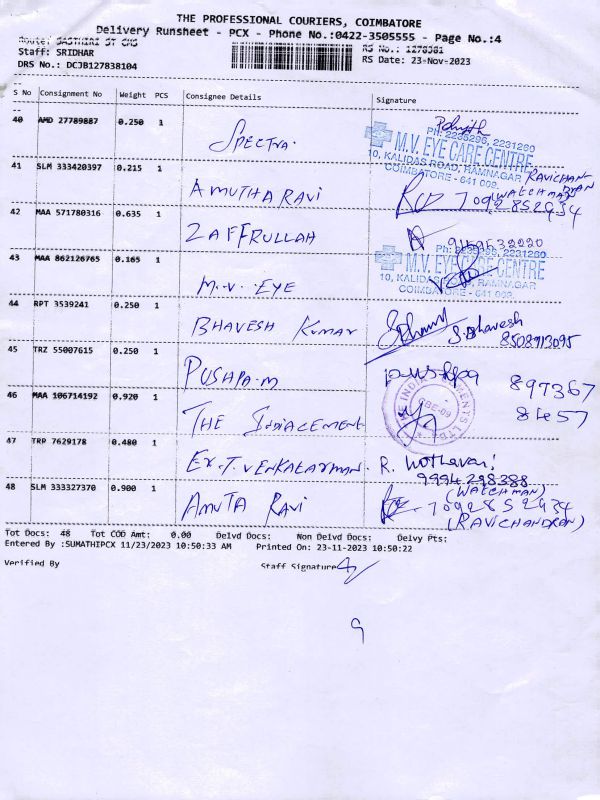 THE PROFESSIONAL COURIERS, COIMBATORE
Delivery Runsheet - PCX - Phone No.:0422-3505555 - Page No.:4
Staff: SRIDHAR
RS No.: 1278381
DRS No.: DCJB127838104
RS Date: 23-Nov-2023
S No Consignment No Weight PCS Consignee Details Signature
40 AMD 27789887 0.250 1 SPECTRA.
Ph: 2236296, 2231260
M.V. EYE CARE CENTRE
10, KALIDAS ROAD, RAMNAGAR,
COIMBATORE - 641 009.
41 SLM 333420397 0.215 1 AMUTHA RAVI RAVICHANDRAN
(WATCHMAN)
7092852934
42 MAA 571780316 0.635 1 ZAFFRULLAH 9159532220
43 MAA 862126765 0.165 1 M.V. EYE
M.V. EYE CARE CENTRE
10, KALIDAS ROAD, RAMNAGAR
COIMBATORE - 641 009.
44 RPT 3539241 0.250 1 BHAVESH KUMAR S.Bhavesh
8508913095
45 TRZ 55007615 0.250 1 PUSHPA.M pushpa 897367
8457
46 MAA 106714192 0.920 1 THE INDIACEMENT
CBE-09
47 TRP 7629178 0.480 1 Er.T.VENKATARMAN. R.
9994298388
(WATCHMAN)
48 SLM 333327370 0.900 1 AMUTA RAVI 7092852934
(RAVICHANDRAN)
Tot Docs: 48 Tot COD Amt: 0.00 Delvd Docs: Non Delvd Docs: Delvy Pts:
Entered By :SUMATHIPCX 11/23/2023 10:50:33 AM Printed On: 23-11-2023 10:50:22
Verified By Staff Signature
9